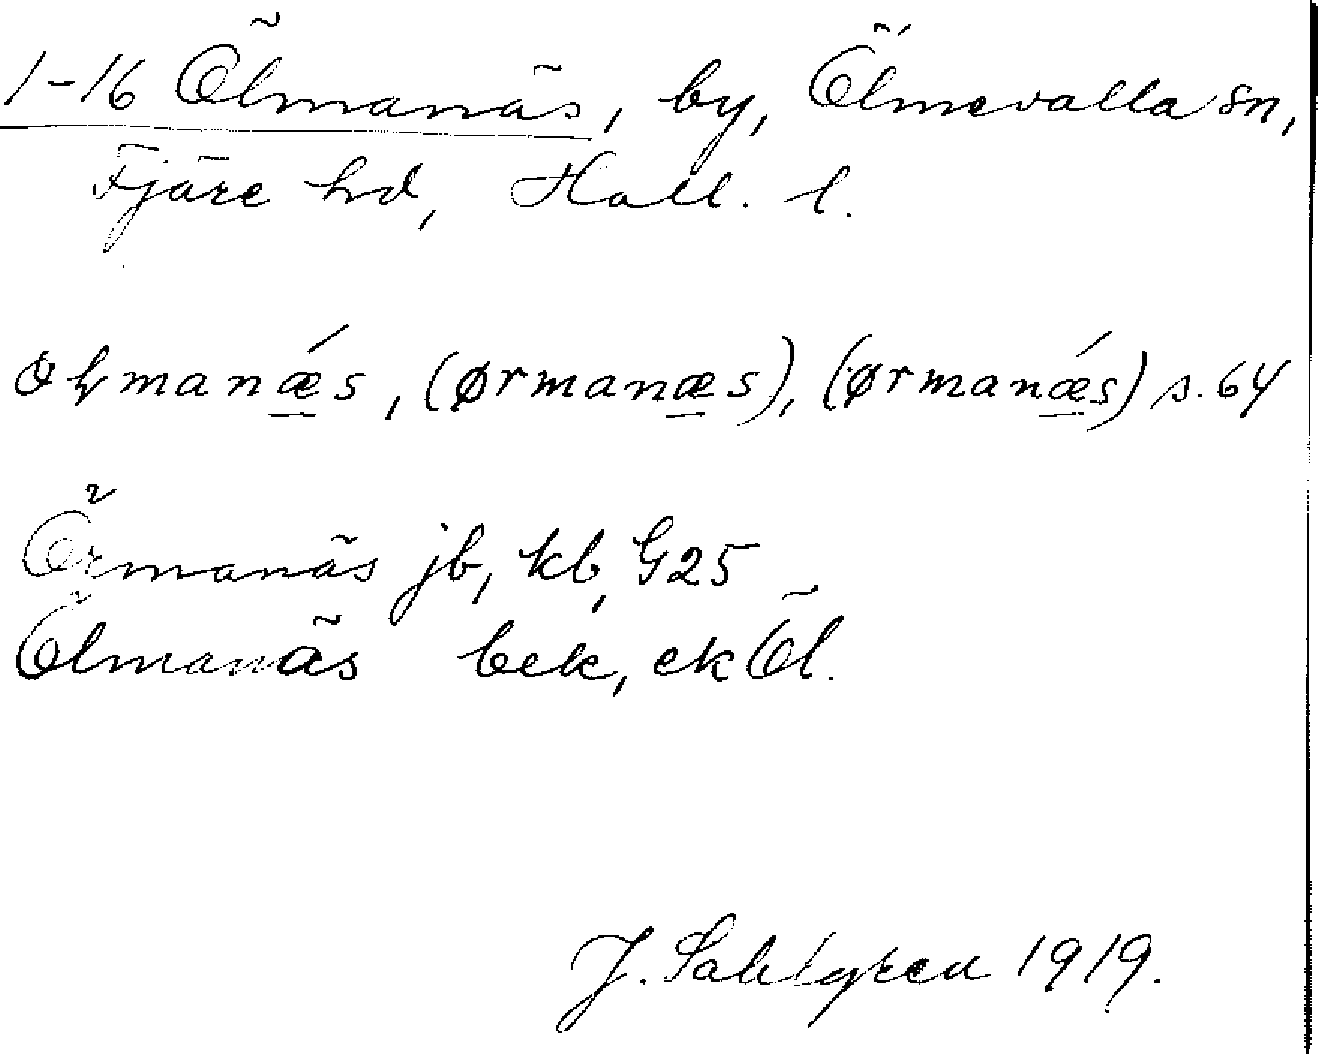 1-16 Ölmanäs, by, Ölmevalla sn,
Fjäre hd, Hall. l.
(ørmanæs), (ørmanǽs) s. 64
Örmanäs jb, kb, G25
Ölmanäs bek, ek Öl.
J. Sahlgren 1919.